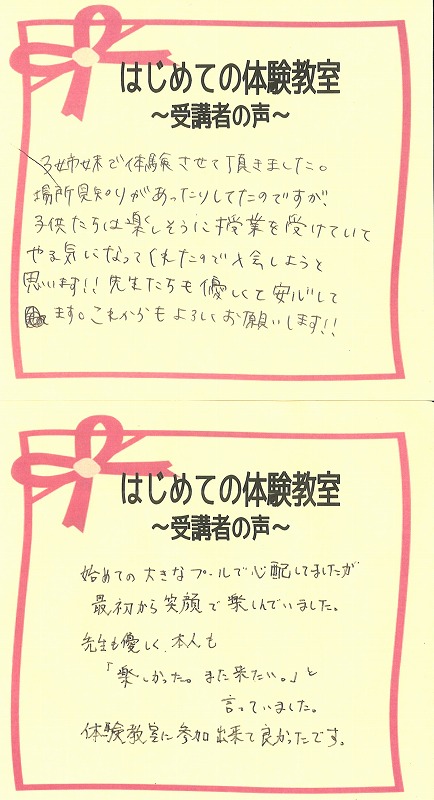 はじめての体験教室
~受講者の声~
3姉妹で体験させて頂きました。
場所見知りがあったりしてたのですが、
子供たちは楽しそうに授業を受けていて
やる気になってくれたので入会しようと
思います!!先生たちも優しくて安心して
ます。これからもよろしくお願いします!!
はじめての体験教室
~受講者の声~
始めての大きなプールで心配してましたが
最初から笑顔で楽しんでいました。
先生も優しく、本人も
「楽しかった。また来たい。」と
言っていました。
体験教室に参加出来て良かったです。